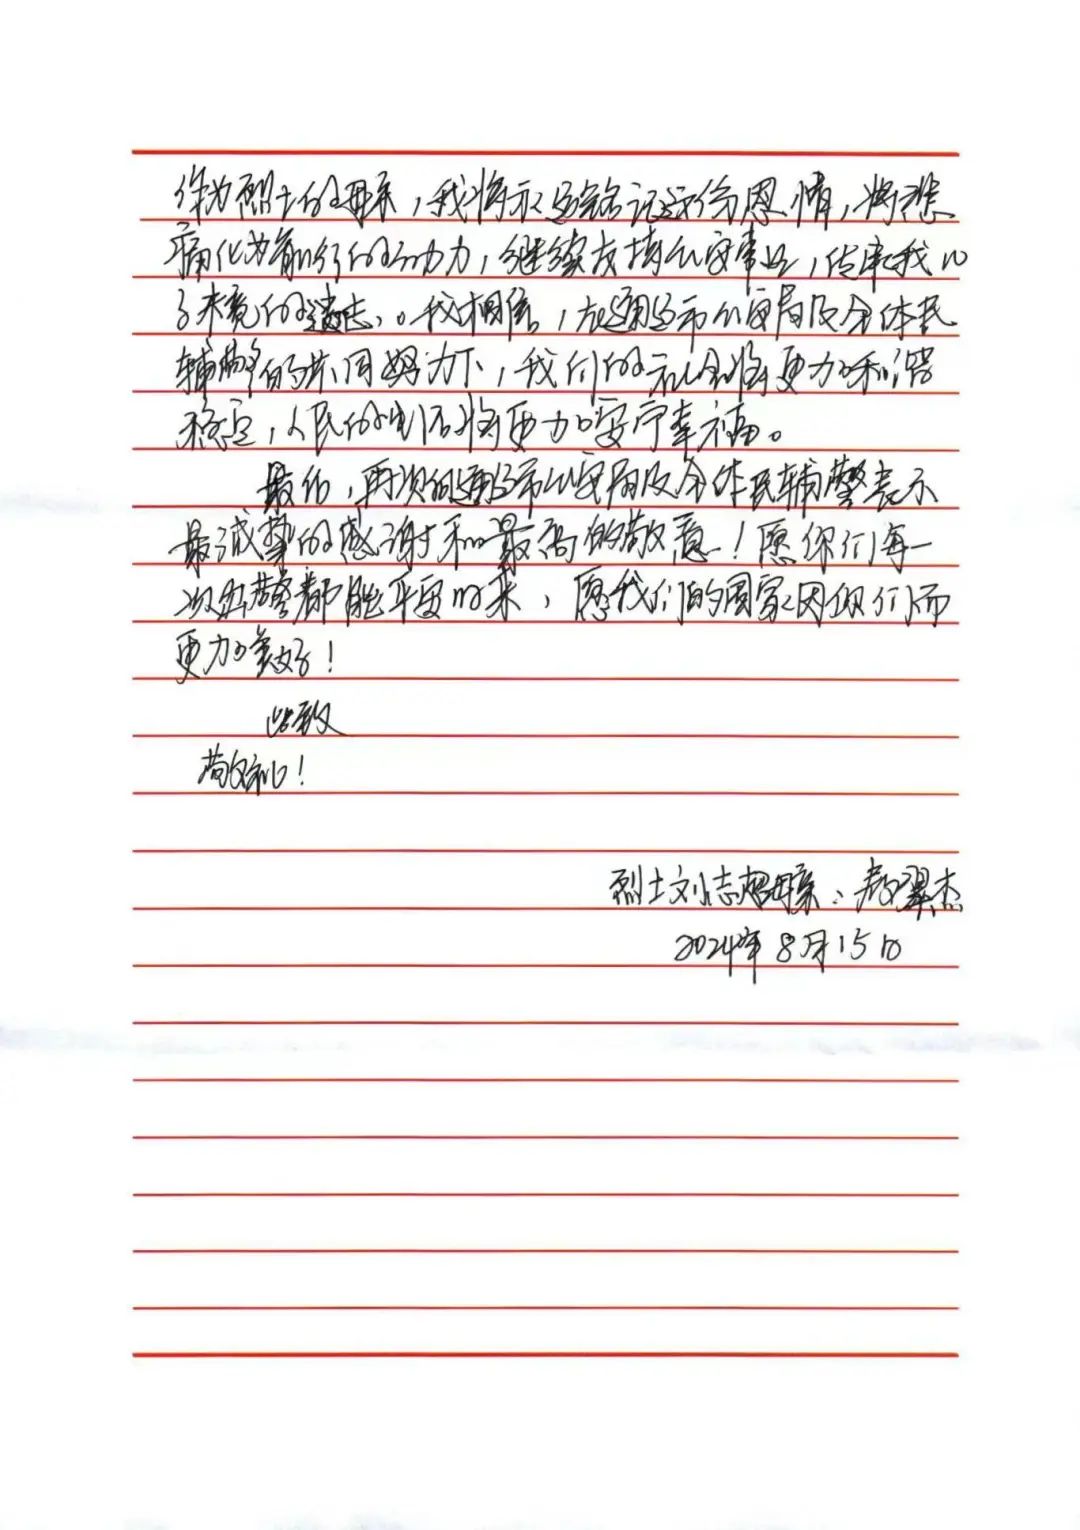 作为烈士的母亲，我将永远铭记这份恩情，将悲
痛化为前行的动力，继续支持公安事业，传承我儿
子未竟的遗志。我相信，在通辽市公安局及全体民
辅警的共同努力下，我们的社会将更加和谐
稳定，人民的生活将更加安宁幸福。
最后，再次向通辽市公安局及全体民辅警表示
最诚挚的感谢和最高的敬意！愿你们每一
次出警都能平安归来，愿我们的国家因你们而
更加美好！
此致
敬礼！
烈士刘志超母亲：翠杰
2024年8月15日